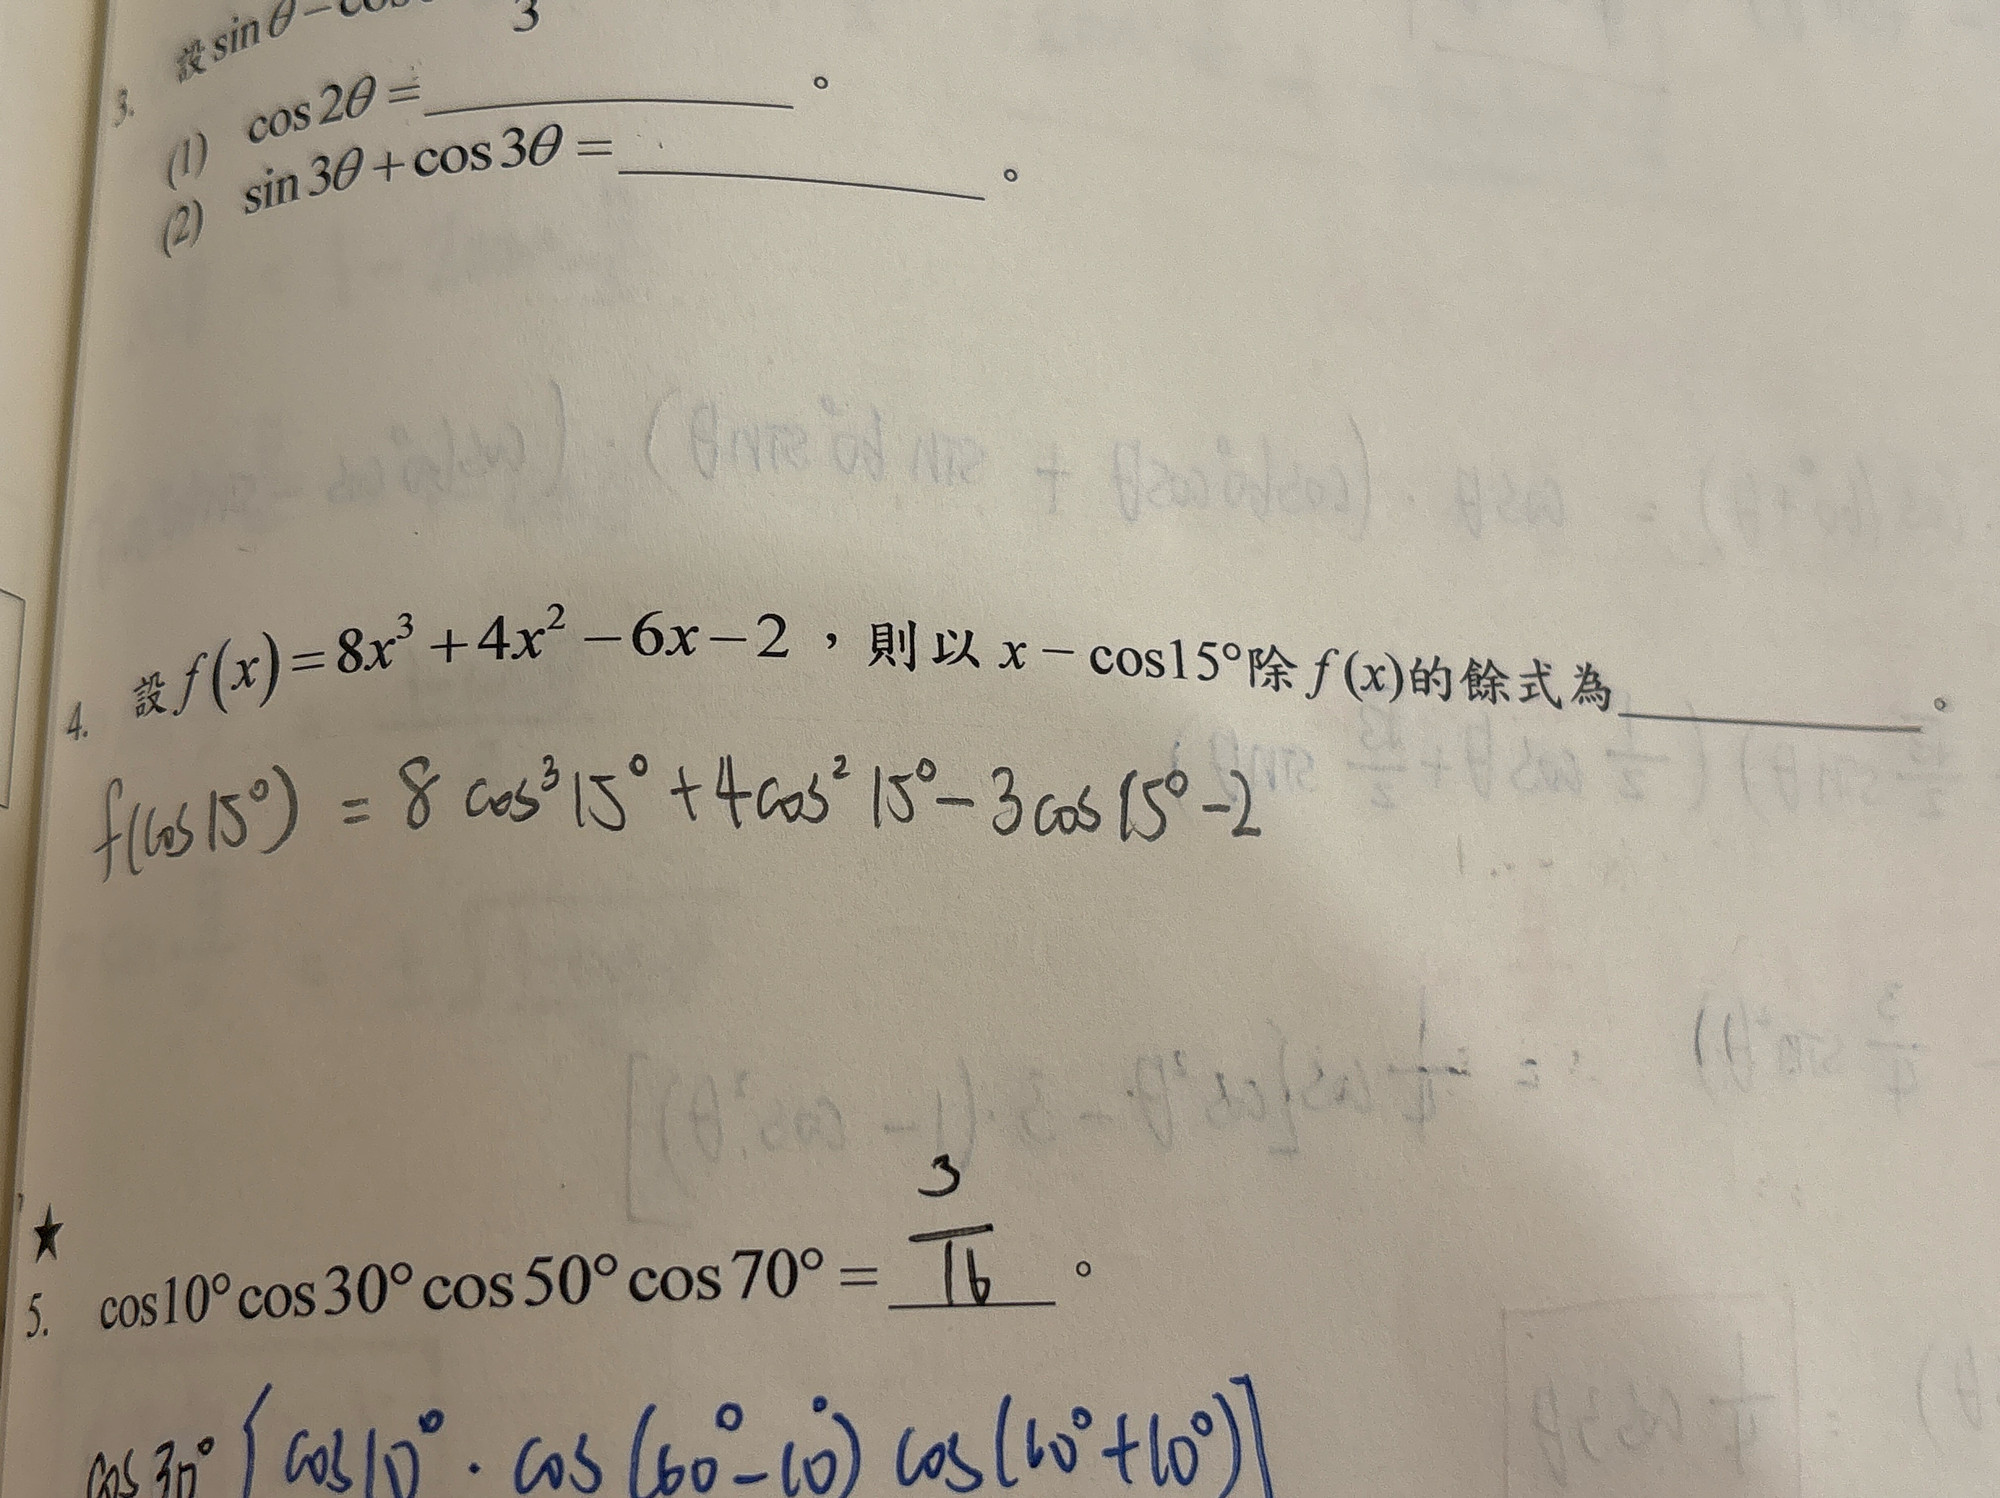 3. 設 sin θ −
3
(1) cos 2θ = ________ 。
(2) sin 3θ + cos 3θ = ________ 。
4. 設 f(x) = 8x³ + 4x² − 6x − 2 ，則以 x − cos15° 除 f(x) 的餘式為 ________ 。
f(cos 15°) = 8 cos³ 15° + 4 cos² 15° − 3 cos 15° − 2
★
5. cos10° cos30° cos50° cos70° = 3/16 。
cos 30° [ cos 10° · cos (60° − 10°) cos (60° + 10°) ]